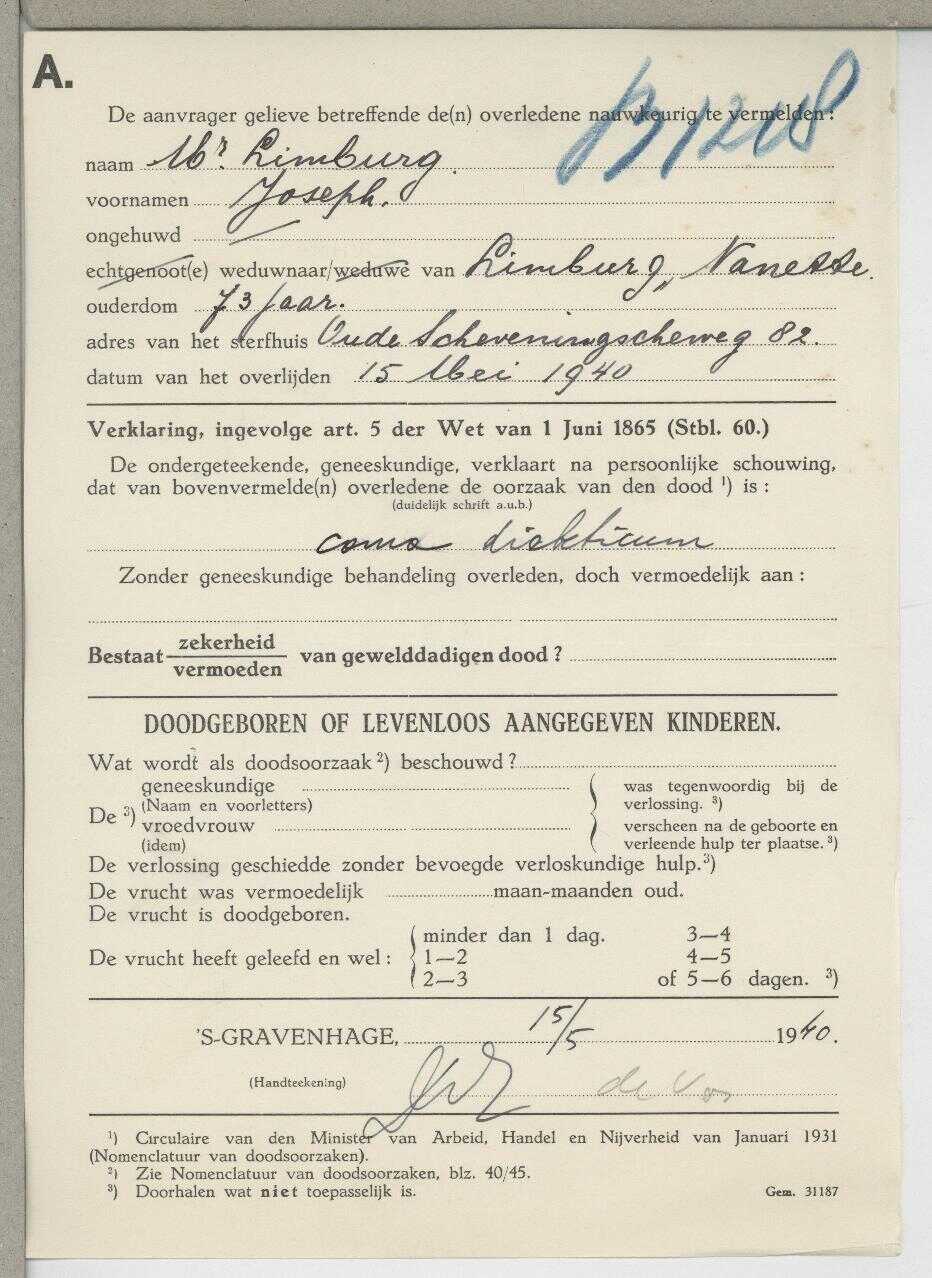 A.
B 1218
De aanvrager gelieve betreffende de(n) overledene nauwkeurig te vermelden:
naam Mr. Limburg.
voornamen Joseph.
ongehuwd —
echtgenoot(e) weduwnaar/weduwe van Limburg, Nanette.
ouderdom 73 jaar.
adres van het sterfhuis Oude Scheveningscheweg 82.
datum van het overlijden 15 Mei 1940
Verklaring, ingevolge art. 5 der Wet van 1 Juni 1865 (Stbl. 60.)
De ondergeteekende, geneeskundige, verklaart na persoonlijke schouwing,
dat van bovenvermelde(n) overledene de oorzaak van den dood ¹) is:
(duidelijk schrift a.u.b.)
coma
Zonder geneeskundige behandeling overleden, doch vermoedelijk aan:
Bestaat zekerheid
vermoeden van gewelddadigen dood?
DOODGEBOREN OF LEVENLOOS AANGEGEVEN KINDEREN.
Wat wordt als doodsoorzaak ²) beschouwd?
geneeskundige was tegenwoordig bij de
(Naam en voorletters) verlossing. ³)
De ³)
vroedvrouw verscheen na de geboorte en
(idem) verleende hulp ter plaatse. ³)
De verlossing geschiedde zonder bevoegde verloskundige hulp. ³)
De vrucht was vermoedelijk maan-maanden oud.
De vrucht is doodgeboren.
minder dan 1 dag. 3—4
De vrucht heeft geleefd en wel: 1—2 4—5
2—3 of 5—6 dagen. ³)
'S-GRAVENHAGE, 15/5 1940.
(Handteekening) de Vos
¹) Circulaire van den Minister van Arbeid, Handel en Nijverheid van Januari 1931
(Nomenclatuur van doodsoorzaken).
²) Zie Nomenclatuur van doodsoorzaken, blz. 40/45.
³) Doorhalen wat niet toepasselijk is. Gem. 31187